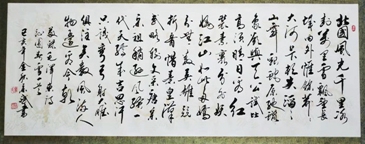 北國風光千里冰
封萬里雪飄望長
城內外惟餘莽莽
大河上下頓失滔滔
山舞銀蛇原馳蠟
象欲與天公試比
高須晴日看紅
裝素裹分外妖
嬈江山如此多嬌
引無數英雄競
折腰惜秦皇漢
武略輸文采唐宗
宋祖稍遜風騷一
代天驕成吉思汗
只識彎弓射大雕
俱往矣數風流人
物還看今朝